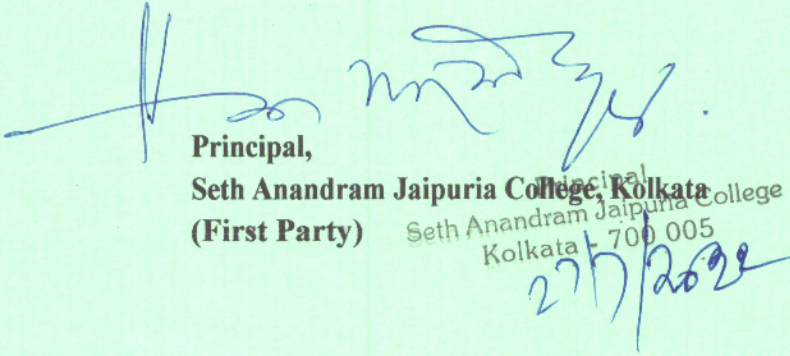 Principal,
Seth Anandram Jaipuria College, Kolkata
(First Party)
Principal
Seth Anandram Jaipuria College
Kolkata - 700 005